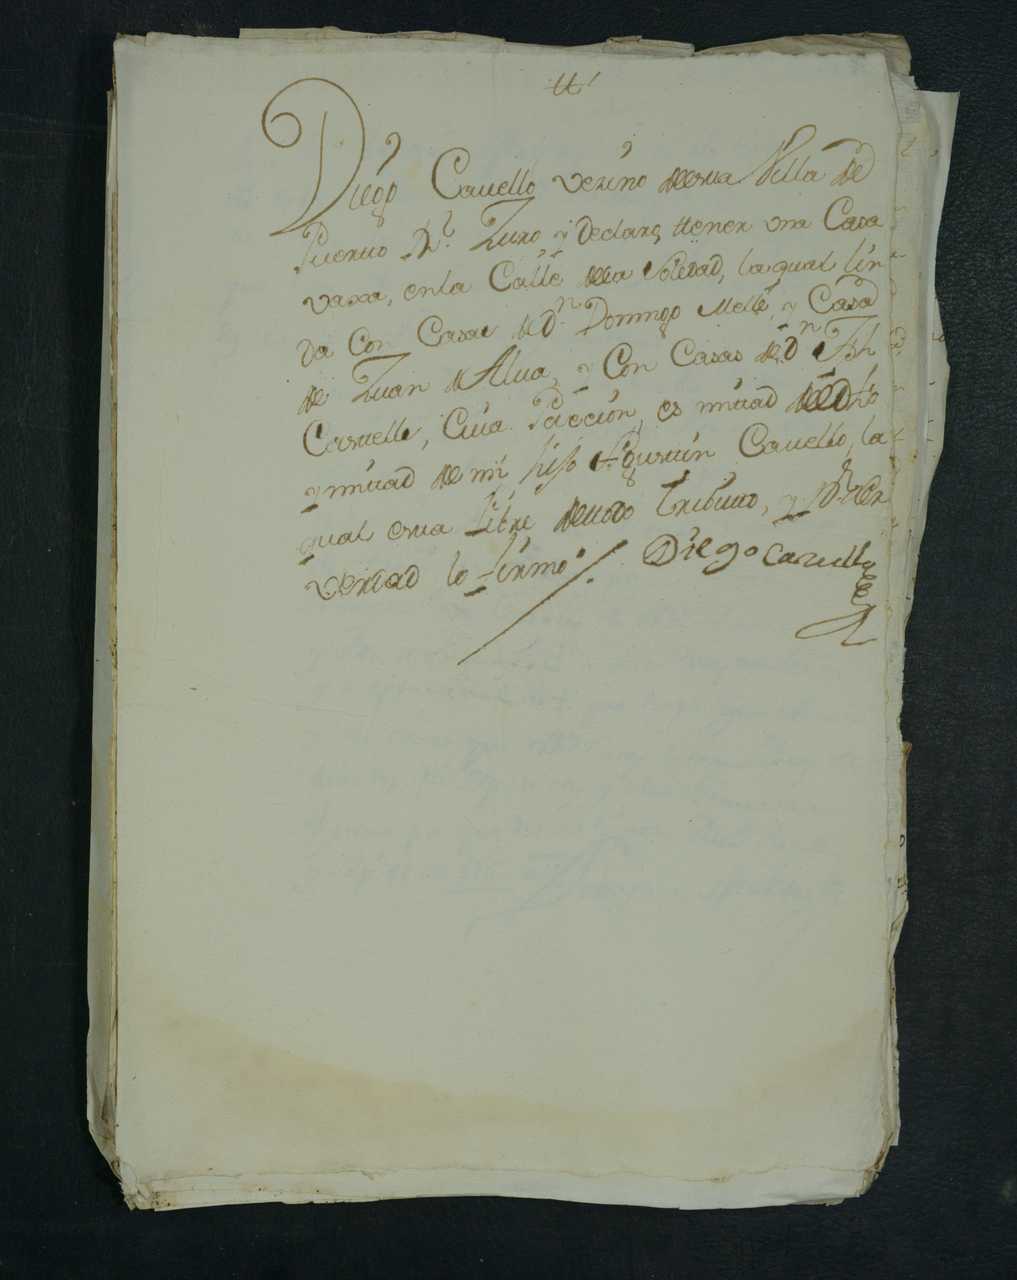 Diego Cavello vezino desta Villa de
Puerto Rl. Zuro y Declaro ttener una Casa
vaxa, en la Calle de la Soledad, la qual lin
da Con Casas de Dn. Domingo Mella, y Casa
de Zuan de Alva, y Con Casas de Dn.
Castello, Cuia Pocecion, es mitad de Dho
y mitad de mi hijo Agustin Cavello, la
qual esta libre de todo tributo, y Por Ser
verdad lo firmo Diego Cavello